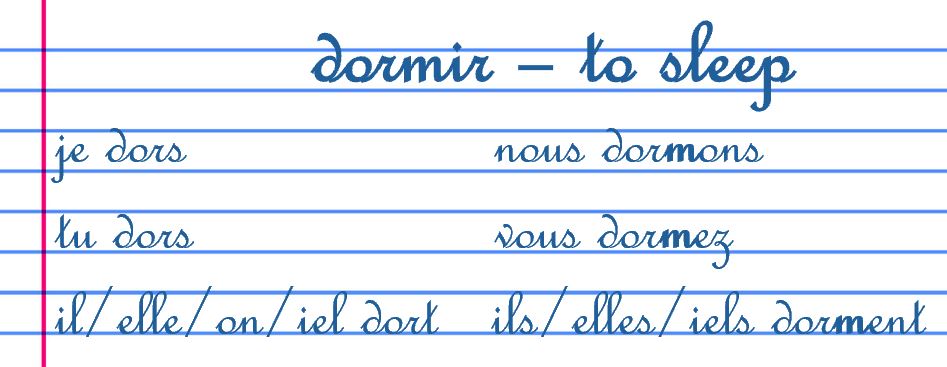 dormir – to sleep
je dors nous dormons
tu dors vous dormez
il/elle/on/iel dort ils/elles/iels dorment